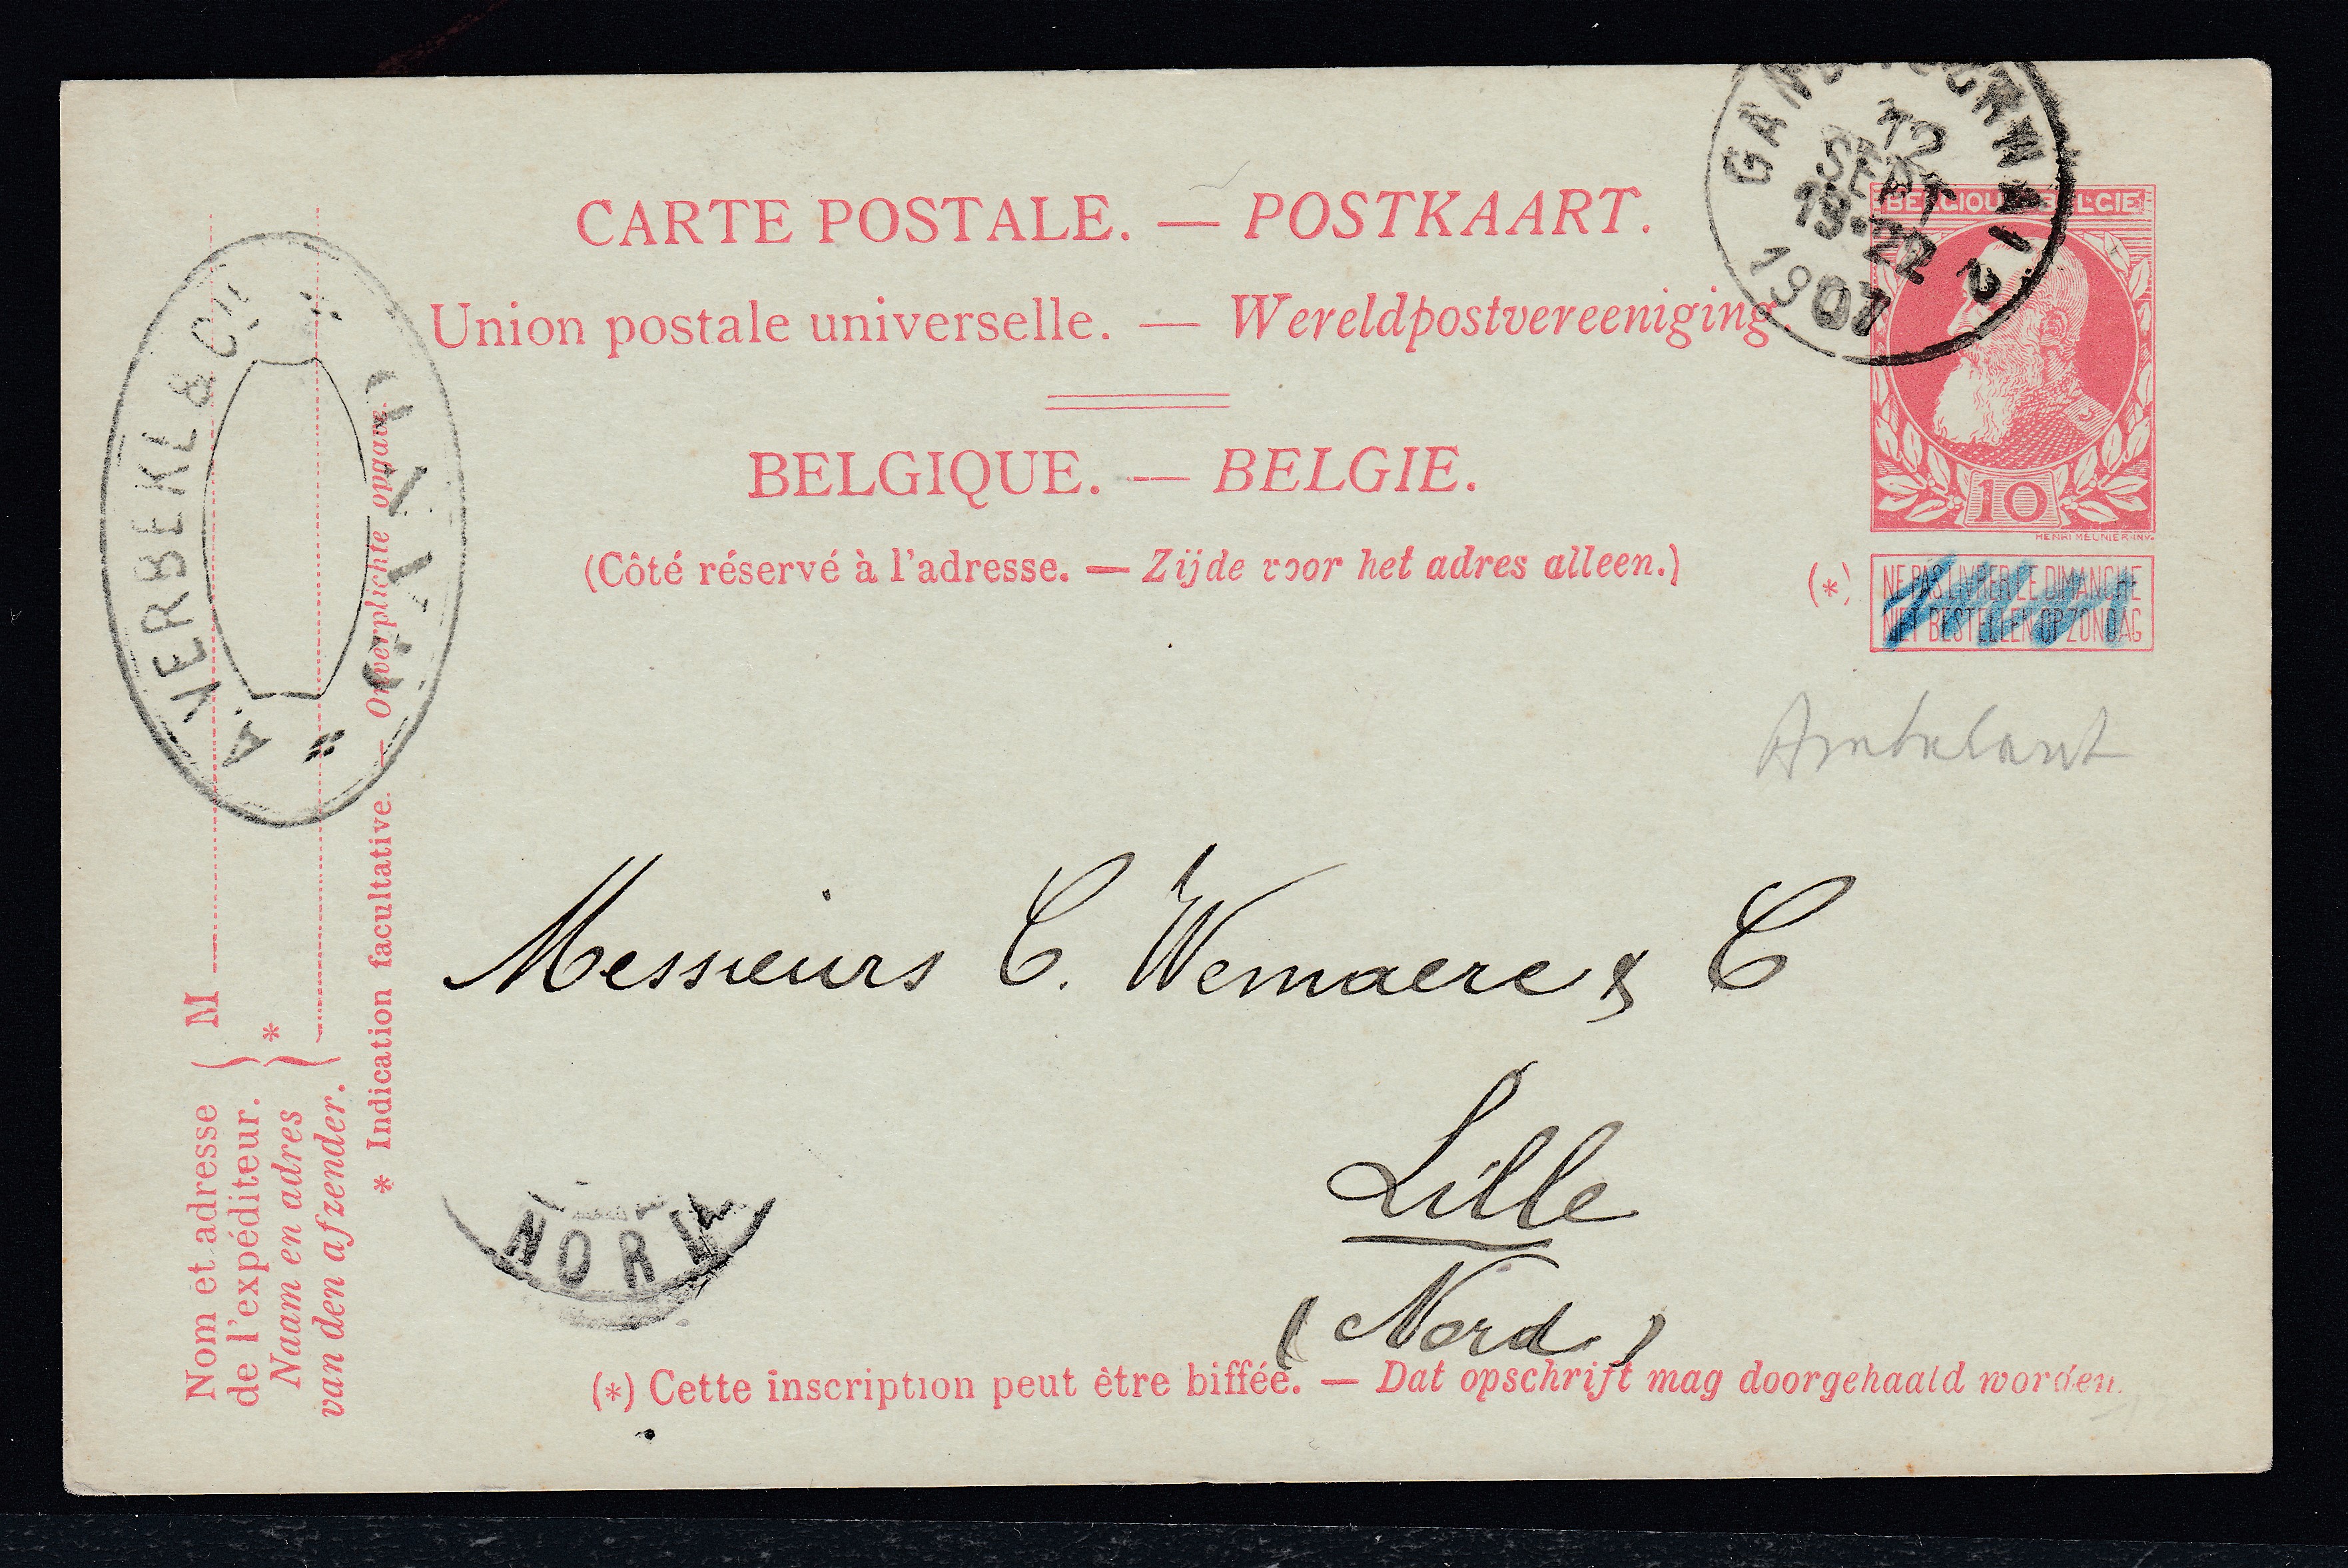 CARTE POSTALE. — POSTKAART.
Union postale universelle. — Wereldpostvereeniging.
BELGIQUE. — BELGIE.
(Côté réservé à l'adresse. — Zijde voor het adres alleen.)
SEPT
1907
BELGIQUE BELGIE
10
HENRI MEUNIER INV.
(*)
NE PAS LIVRER LE DIMANCHE
NIET BESTELLEN OP ZONDAG
Ambulant
A. VERBEKE & Cie
GAND
Messieurs C. Wemaere & C
Lille
(Nord)
NORD
Nom et adresse
de l'expéditeur.
Naam en adres
van den afzender.
M
*
* Indication facultative. — Onverplichte opgave.
(*) Cette inscription peut être biffée. — Dat opschrift mag doorgehaald worden.